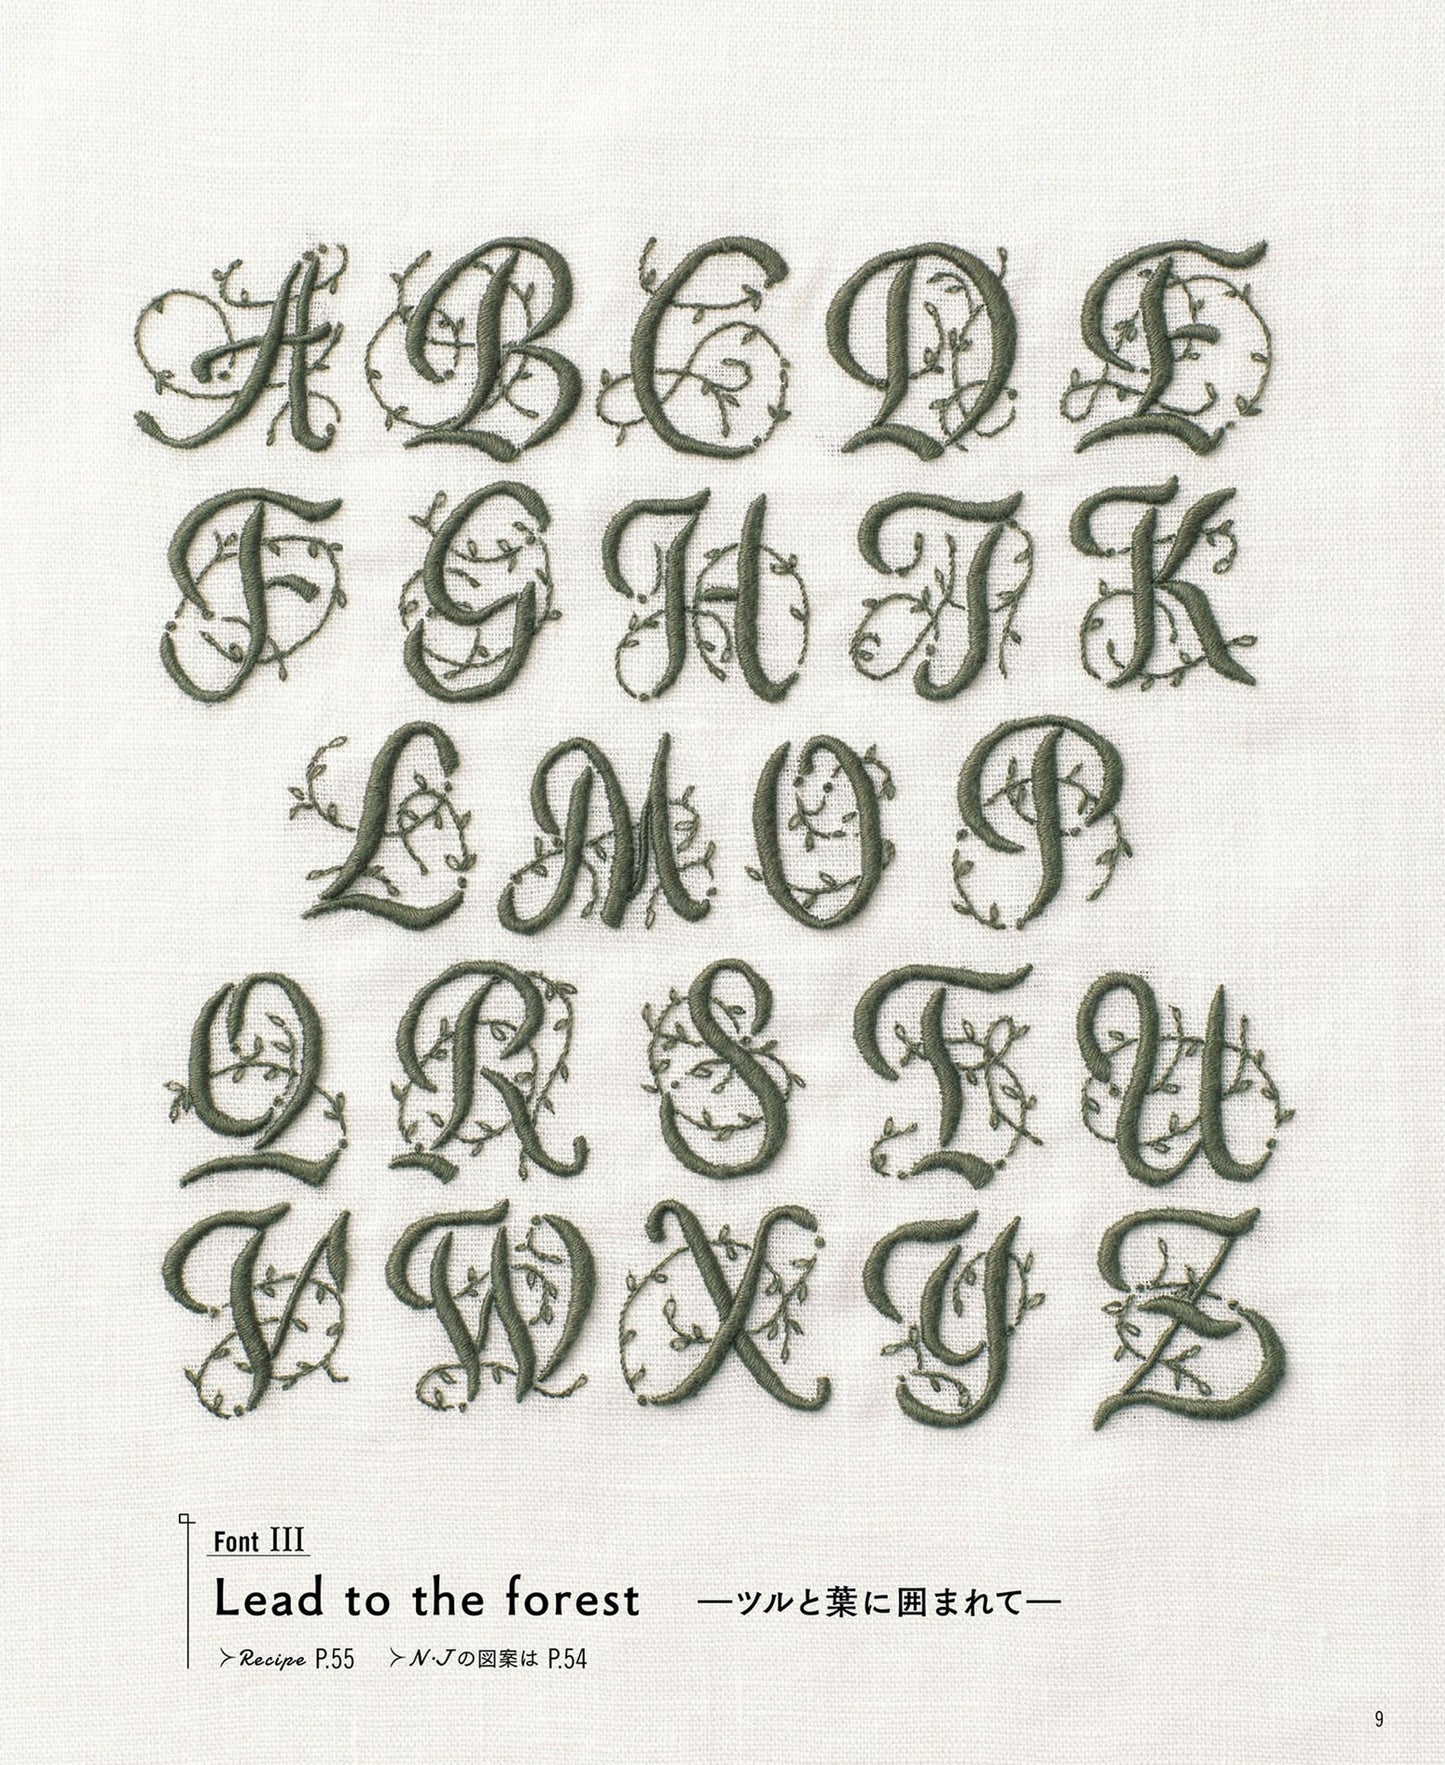 A B C D E
F G H I K
L M O P
Q R S T U
V W X Y Z
Font III
Lead to the forest —ツルと葉に囲まれて—
≻Recipe P.55 ≻N·Jの図案は P.54
9